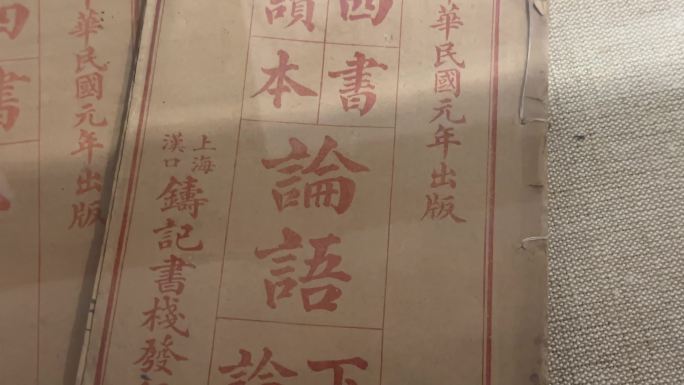 華民國元年出版
四書
讀本
論語
下
論
上海
漢口
鑄記書棧發
華民國元年出版
書